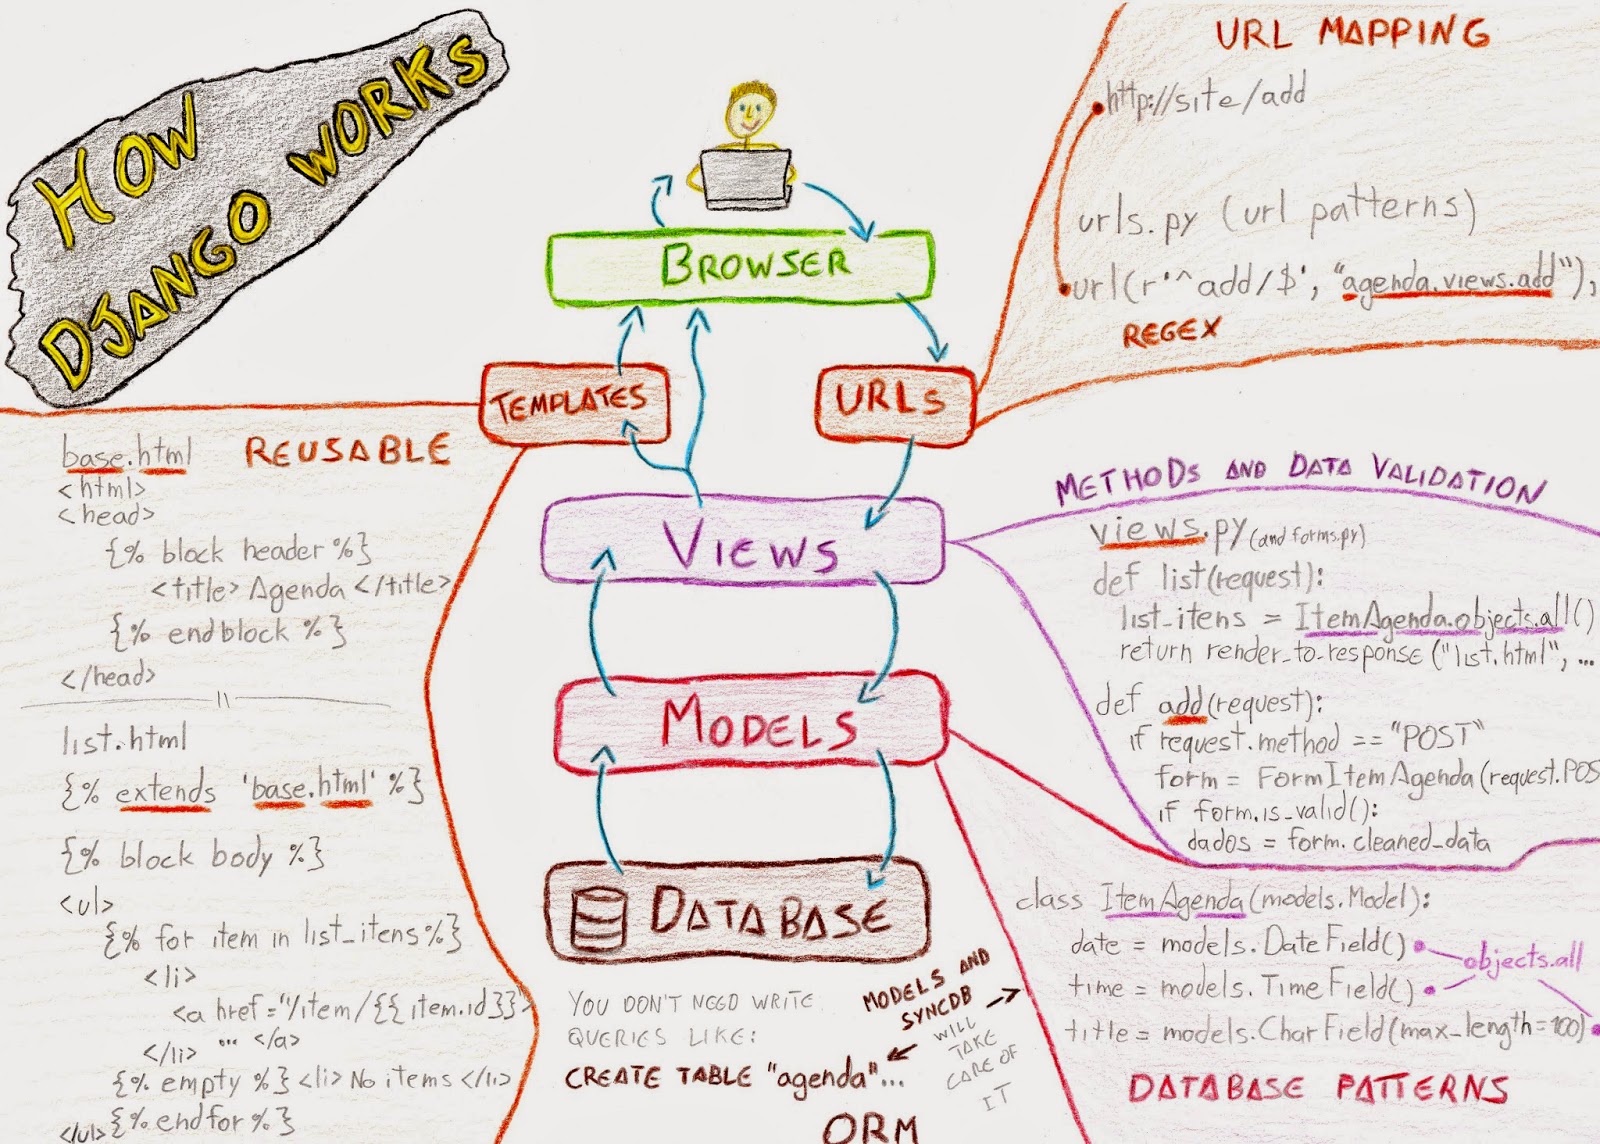 HOW
DJANGO WORKS
BROWSER
TEMPLATES
URLS
VIEWS
MODELS
DATABASE
URL MAPPING
http://site/add
urls.py (url patterns)
url(r'^add/$', "agenda.views.add"),
REGEX
REUSABLE
base.html
<html>
<head>
{% block header %}
<title> Agenda </title>
{% endblock %}
</head>
list.html
{% extends 'base.html' %}
{% block body %}
<ul>
{% for item in list_itens %}
<li>
<a href="/item/{{item.id}}">
... </a>
</li>
{% empty %} <li> No items </li>
{% endfor %}
</ul>
METHODS AND DATA VALIDATION
views.py (and forms.py)
def list(request):
list_itens = ItemAgenda.objects.all()
return render_to_response ("list.html", ...
def add(request):
if request.method == "POST"
form = FormItemAgenda(request.POS
if form.is_valid():
dados = form.cleaned_data
class ItemAgenda(models.Model):
date = models.DateField()
time = models.TimeField()
title = models.CharField(max_length=100)
objects.all
DATABASE PATTERNS
YOU DON'T NEED WRITE
QUERIES LIKE:
CREATE TABLE "agenda"...
MODELS AND
SYNCDB
WILL
TAKE
CARE OF
IT
ORM